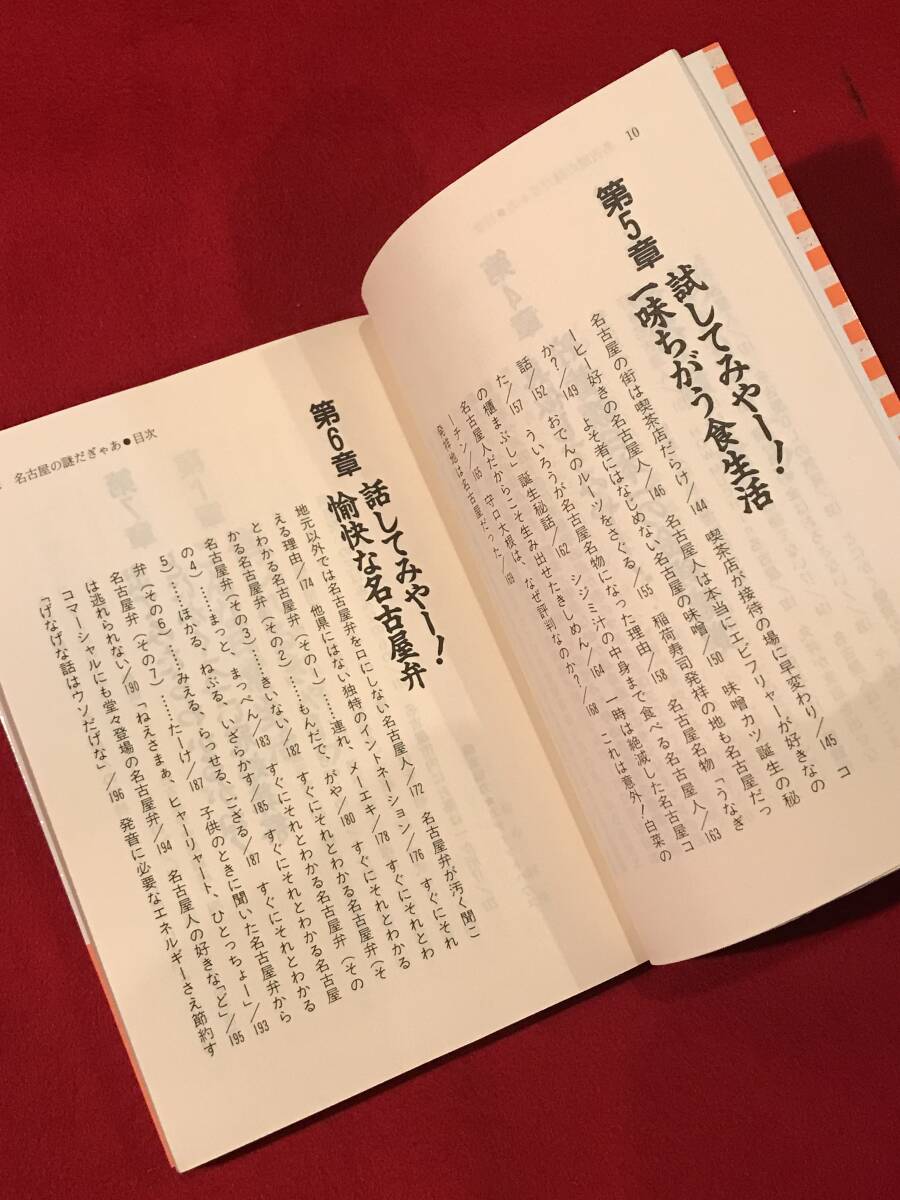 10
第5章 試してみやー!
一味ちがう食生活
名古屋の街は喫茶店だらけ/144　喫茶店が接待の場に早変わり/145　コ
ーヒー好きの名古屋人/146　名古屋人は本当にエビフリャーが好きなの
か?/149　よそ者にはなじめない名古屋の味噌/150　味噌カツ誕生の秘
話/152　おでんのルーツをさぐる/155　稲荷寿司発祥の地も名古屋だっ
た/157　ういろうが名古屋名物になった理由/158　名古屋名物「うなぎ
の櫃まぶし」誕生秘話/162　シジミ汁の中身まで食べる名古屋人/163
名古屋人だからこそ生み出せたきしめん/164　一時は絶滅した名古屋コ
ーチン/165　守口大根は、なぜ評判なのか?/168　これは意外!白菜の
発祥地は名古屋だった/169
第6章 話してみやー!
愉快な名古屋弁
地元以外では名古屋弁を口にしない名古屋人/172　名古屋弁が汚く聞こ
える理由/174　他県にはない独特のイントネーション/176　すぐにそれ
とわかる名古屋弁(その1)……連れ、メーエキ/178　すぐにそれとわ
かる名古屋弁(その2)……もんだで、がや/180　すぐにそれとわかる
名古屋弁(その3)……きいない/182　すぐにそれとわかる名古屋弁(そ
の4)……まっと、まっぺん/183　すぐにそれとわかる名古屋弁(その
5)……ほかる、ねぶる、いざらかす/185　すぐにそれとわかる名古屋
弁(その6)……みえる、らっせる、ござる/187　すぐにそれとわかる
名古屋弁(その7)……たーけ/187　子供のときに聞いた名古屋弁から
は逃れられない/190　「ねえさまぁ、ヒャーリャート、ひとっちょー」/193
コマーシャルにも堂々登場の名古屋弁/194　名古屋人の好きな「ど」/195
「げなげな話はウソだげな」/196　発音に必要なエネルギーさえ節約す
名古屋の謎だぎゃあ●目次